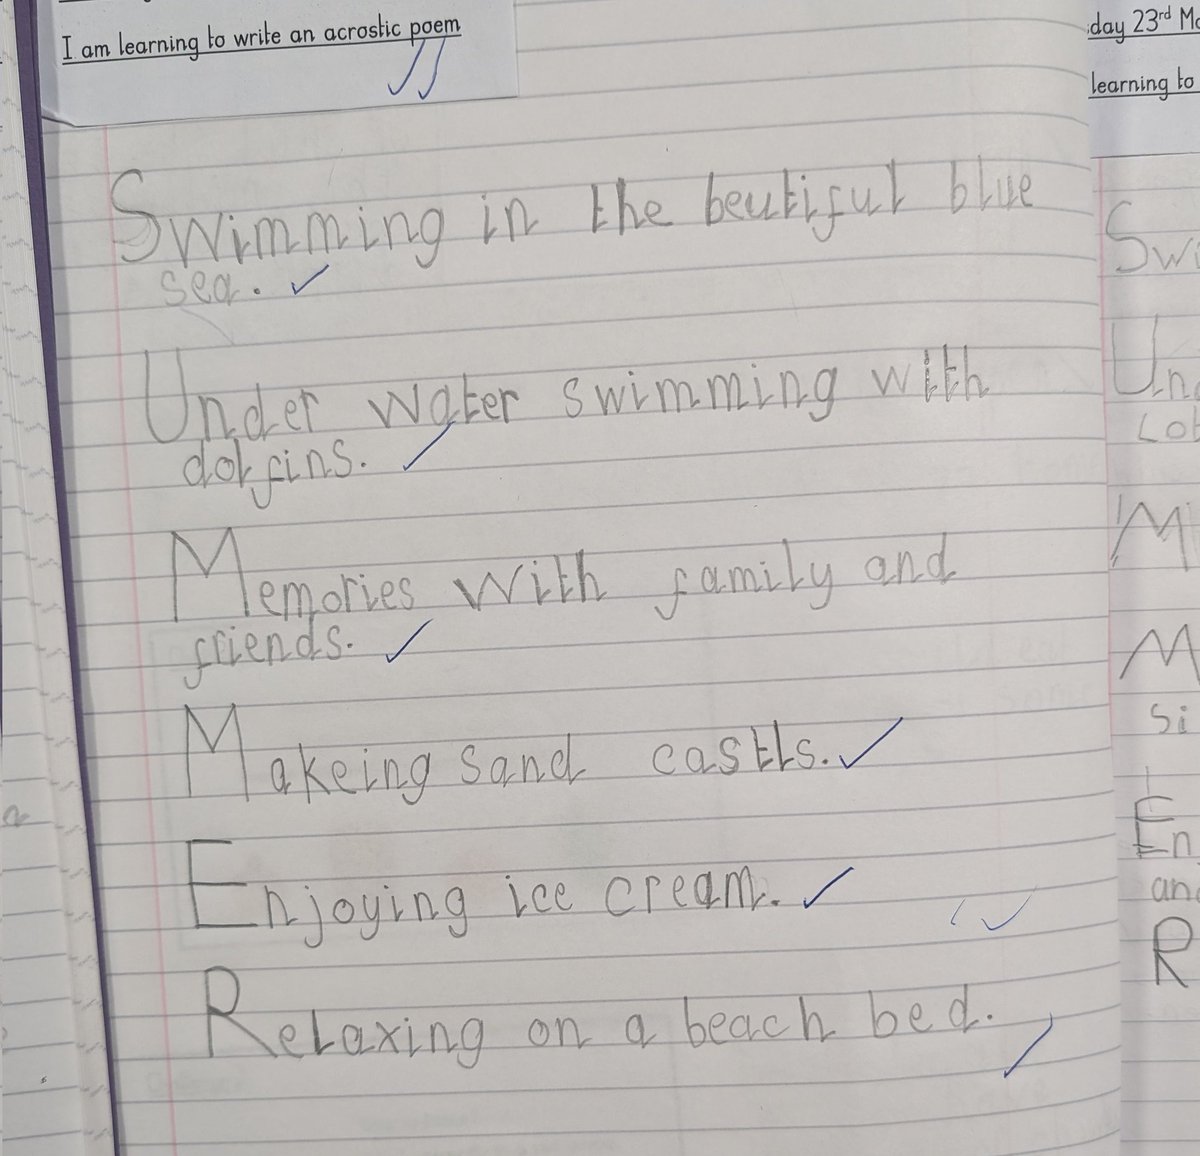 I am learning to write an acrostic poem
Swimming in the beutiful blue
sea.
Under water swimming with
dolfins.
Memories with family and
friends.
Makeing sand castls.
Enjoying ice cream.
Relaxing on a beach bed.
day 23rd
learning to